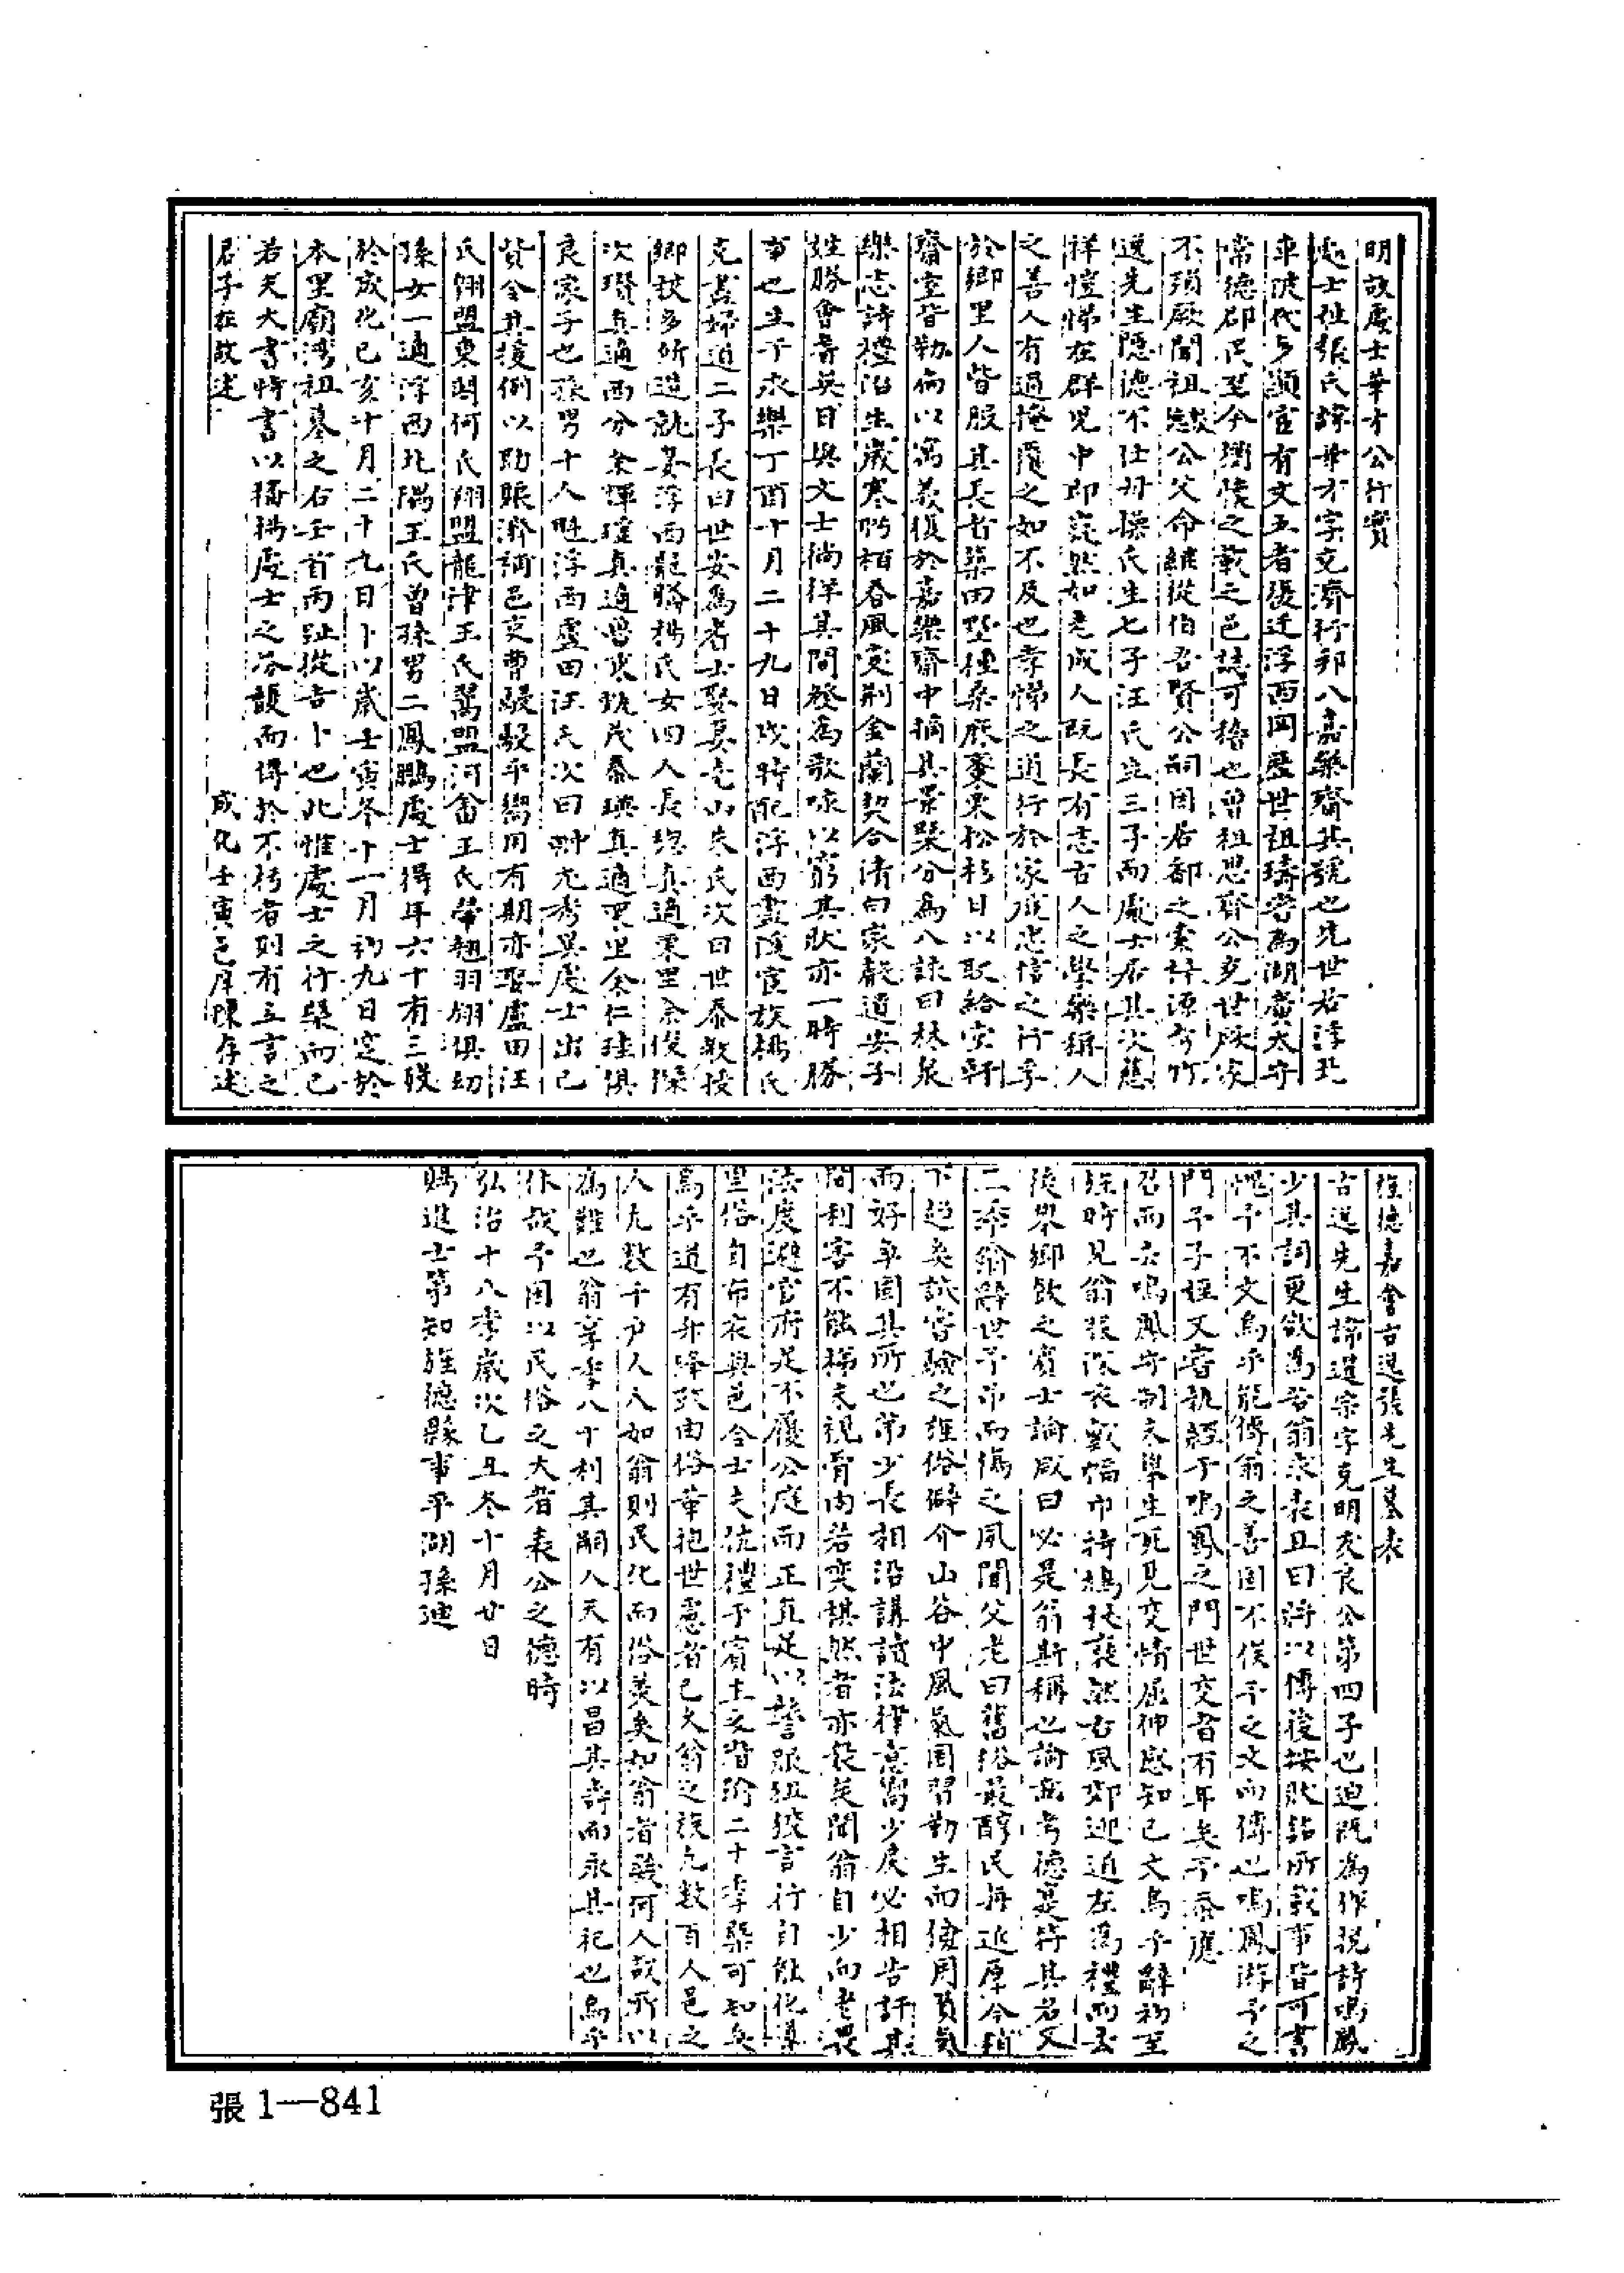 明故處士華才公行實
處士姓張氏諱華才字克濟行邦八嘉樂齋其號也先世若浮北
車陂代多顯宦有文五者後迁浮西岡歷世祖璹字為湖廣太守
常德郡民至今懷之載之邑誌可稽也曾祖思齊公克世厥家
不殞厥聞祖公父命継從伯君賢公嗣因居鄱之索梓源考竹
逸先生隱德不仕母操氏生七子汪氏生三子而處士居其次慈
祥愷悌在群児中即裒然如老成人既長有志古人之學樂稱人
之善人有過掩覆之如不及也孝悌之道行於家庭忠信之行孚
於鄉里人皆服其長者築田墅種桑麻棗栗松杉日以取給室軒
齋堂皆勒扁以寓義復於嘉樂齋中摘其景槩分為八詠曰林泉
樂志詩禮治生歲寒松栢春風棠荆金蘭契合清白家聲道安子
姓勝會耆英日與文士徜徉其間發為歌咏以窮其狀亦一時勝
事也生于永樂丁酉十月二十九日戌時配浮西畫溪宦族楊氏
克盡婦道二子長曰世安為省士娶莫老山朱氏次曰世泰教授
鄉校多所造就娶浮西龍勝楊氏女四人長璁真適栗里余俊深
次瓚真適西分余輝瓊真適曾家琥茂泰瑛真適栗里余仁珪俱
良家子也孫男十人魁浮西盧田汪氏次曰翀尤秀異處士出己
貲令其援例以助賑濟補邑吏曹駸駸乎嚮用有期亦娶盧田汪
氏翱盟東閣何氏翔盟龍津王氏翥盟河畬王氏翬翹羽翎俱幼
孫女一適浮西北隅王氏曾孫男二鳳鵬處士得年六十有三歿
於成化己亥十月二十九日卜以歲壬寅冬十一月初九日窆於
本里廟灣祖墓之右壬首丙趾從吉卜也此惟處士之行槩而已
若夫大書特書以播揚處士之芬馥而博於不朽者則有立言之
君子在敢述
成化壬寅邑庠陳存述
旌德嘉會古逸張先生墓表
古逸先生諱選宗字克明友良公第四子也迪既為作挽詩鳴鳳
少其詞更欲為若翁求表且曰將以博後按狀誌所載事皆可書
愧予不文烏乎能傳翁之善固不俟予之文而傳也鳴鳳游予之
門予子姪又嘗執經于鳴鳳之門世交者有年矣予忝應
召而去鳴鳳守制未畢生死見交情屈伸感知己文烏乎辭初至
旌時見翁張深衣戴幅巾持鳩杖裒然古風郊迎道左為禮而去
後舉鄉飲之賓士論咸曰必是翁斯稱也論年考德定符其名又
二年翁辭世予吊而傷之夙聞父老曰舊俗最醇民毋近厚今稍
下趋矣試嘗驗之旌俗僻介山谷中風氣固習勤生而儉用負氣
而好争固其所也弟少長相沿講讀法律意嚮少戾必相告訐其
間利害不能稀末視骨肉若奕棋然者亦從矣聞翁自少向老畏
法度避官府足不履公庭而正直足以警服狙狡言行自能化導
里俗自布衣與邑令士夫伉禮予賓主之者殆二十季槩可知矣
焉乎道有升降政由俗革抱世慮者已久翁之族凡數百人邑之
人凡数千户人人如翁則民化而俗美矣如翁者幾何人哉所以
為難也翁享季八十利其嗣人天有以昌其壽而永其祀也烏乎
休哉予固以民俗之大者表公之德時
弘治十八季歲次乙丑冬十月廿日
賜進士第知旌德縣事平湖孫迪
張1—841